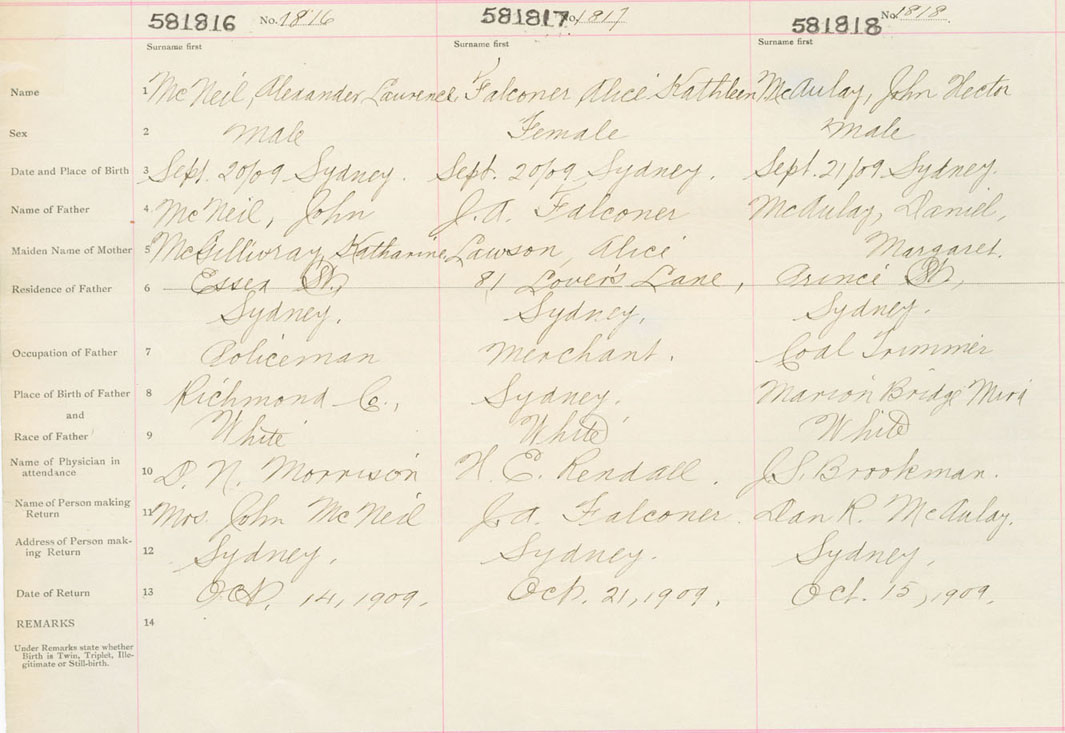 581816 No. 1816 581817 No. 1817 581818 No. 1818
Surname first Surname first Surname first
Name 1 McNeil, Alexander Laurence Falconer Alice Kathleen McAulay, John Hector
Sex 2 Male Female Male
Date and Place of Birth 3 Sept. 20/09 Sydney. Sept. 20/09 Sydney. Sept. 21/09 Sydney.
Name of Father 4 McNeil, John J. A. Falconer McAulay, Daniel,
Maiden Name of Mother 5 McGillivray, Katharine Lawson, Alice Margaret.
Residence of Father 6 Essex St, 81 Lover's Lane, Prince St,
Sydney. Sydney, Sydney.
Occupation of Father 7 Policeman Merchant. Coal Trimmer
Place of Birth of Father 8 Richmond Co., Sydney. Marion Bridge Mira
and
Race of Father 9 White White White
Name of Physician in
attendance 10 D. N. Morrison H. E. Kendall. J. S. Brookman.
Name of Person making
Return 11 Mrs. John McNeil J. A. Falconer. Dan R. McAulay.
Address of Person mak-
ing Return 12 Sydney. Sydney. Sydney.
Date of Return 13 Oct. 14, 1909. Oct. 21, 1909. Oct. 15, 1909.
REMARKS 14
Under Remarks state whether
Birth is Twin, Triplet, Ille-
gitimate or Still-birth.